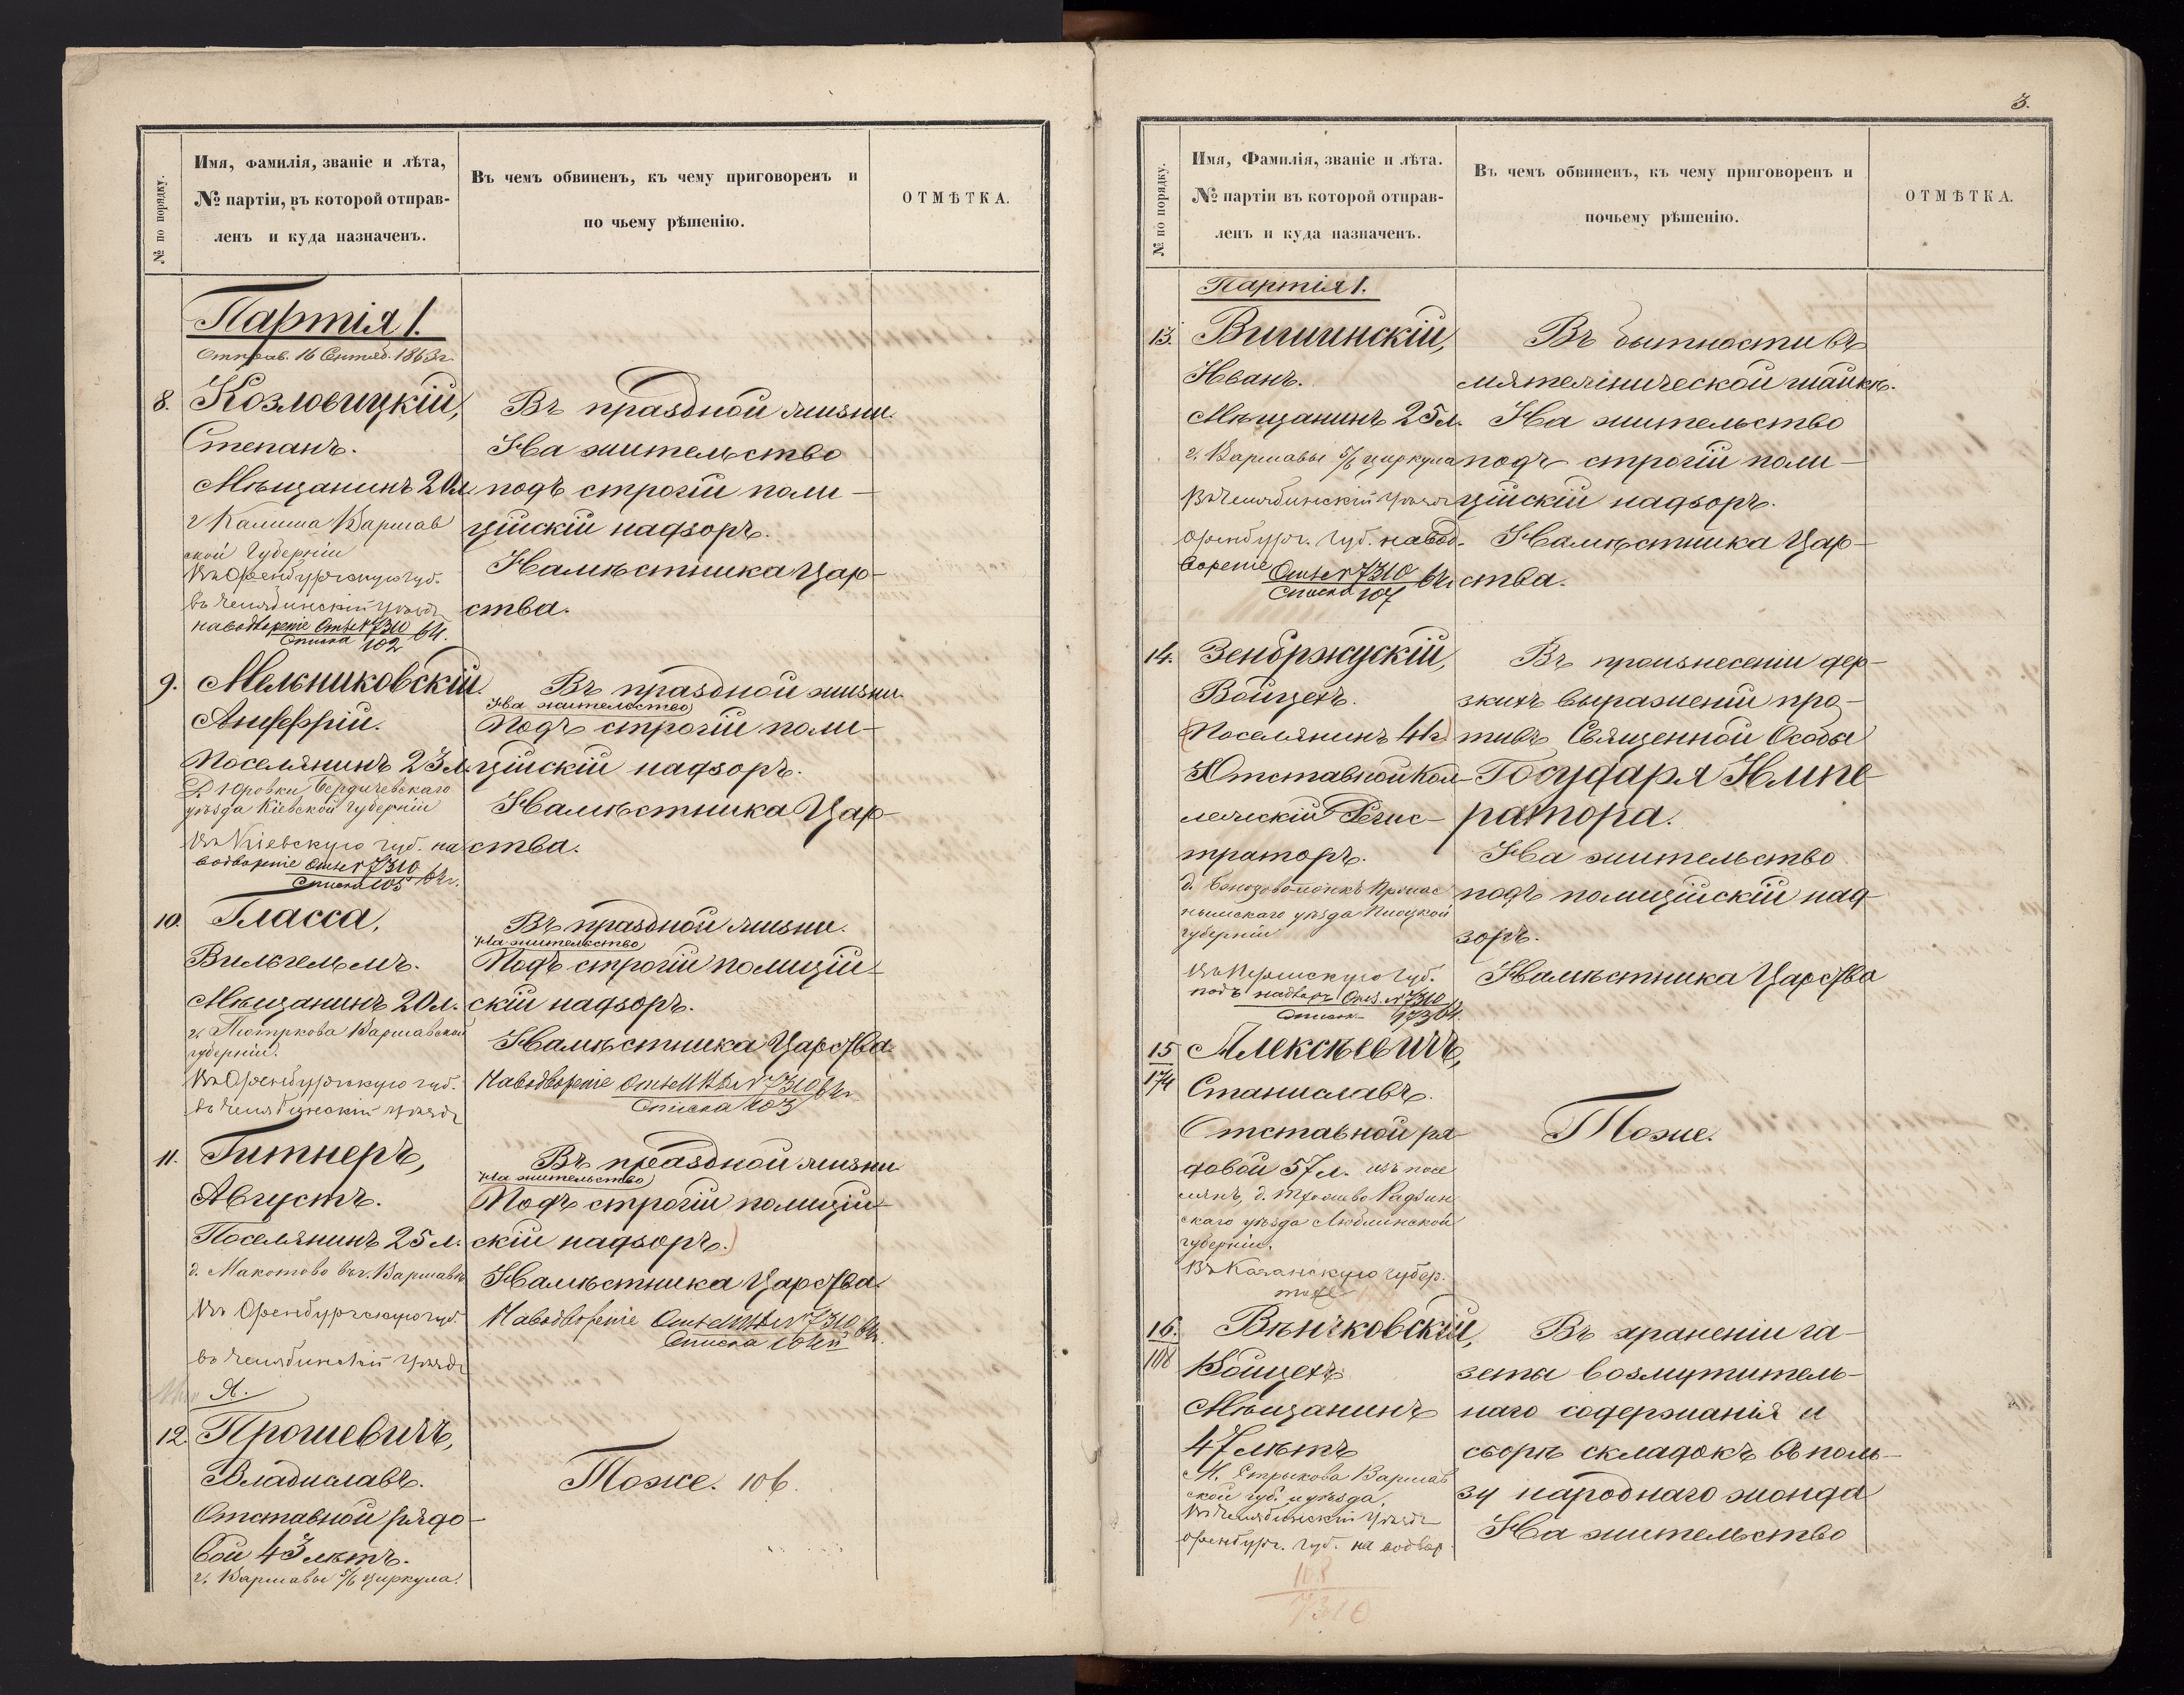 № по порядку.
Имя, фамилія, званіе и лѣта,
№ партіи, въ которой отправ-
ленъ и куда назначенъ.
Въ чемъ обвиненъ, къ чему приговоренъ и
по чьему рѣшенію.
ОТМѢТКА.
Партія 1.
Отправ. 16 Сентяб. 1863 г.
8. Козловицкій,
Степанъ.
Мѣщанинъ 20 л.
г Калиша Варшав
ской Губерніи
Въ Оренбургскую губ.
въ Челябинскій уѣздъ
наводвореніе Отз. № 7310 64.
Списка 102
Въ праздной жизни.
На жительство
подъ строгій поли-
ційскій надзоръ.
Намѣстника Цар-
ства.
9. Мельниковскій.
Онуфрій.
Поселянинъ 23 л.
Д. Юровки Бердичевскаго
уѣзда Кіевской губерніи
Въ Кіевскую губ. на
водвореніе Отз. № 7310 64 г.
Списка 105
Въ праздной жизни.
На жительство
Подъ строгій поли-
ційскій надзоръ.
Намѣстника Цар-
ства.
10. Гласса,
Вильгельмъ.
Мѣщанинъ 20 л.
г. Піотркова Варшавской
губерніи.
Въ Оренбургскую губ.
въ Челябинскій уѣздъ
Въ праздной жизни.
На жительство
Подъ строгій полицій-
скій надзоръ.
Намѣстника Царства.
Наводвореніе Отз. М. В. Д. № 7310 64 г.
Списка 103
11. Гитнеръ,
Августъ.
Поселянинъ 25 л.
д. Макотово въ г. Варшавѣ
Въ Оренбургскую губ.
въ Челябинскій уѣздъ
Въ праздной жизни
На жительство
Подъ строгій полицій-
скій надзоръ.
Намѣстника Царства.
Наводвореніе № 7310 64 г.
Списка 104
Я.
12. Прошевичъ,
Владиславъ.
Отставной рядо-
вой 43 лѣтъ.
г. Варшавы 5/6 циркула.
Тоже. 106.
3.
№ по порядку.
Имя, Фамилія, званіе и лѣта.
№ партіи въ которой отправ-
ленъ и куда назначенъ.
Въ чемъ обвиненъ, къ чему приговоренъ и
почьему рѣшенію.
ОТМѢТКА.
Партія 1.
13. Вишинскій,
Иванъ.
Мѣщанинъ 25 л.
г. Варшавы 5/6 циркула
Въ Челябинскій уѣздъ
Оренбург. губ. навод-
вореніе Отз. № 7310 64 г.
Списка 107
Въ бытности въ
мятежнической шайкѣ.
На жительство
подъ строгій поли-
ційскій надзоръ.
Намѣстника Цар-
ства.
14. Зенбржускій,
Войцехъ.
(Поселянинъ 41 г.)
Отставной Кол-
лежскій Регис-
траторъ.
уѣзда Плоцкой
губерніи
Въ Пермскую губ.
подъ надзоръ Отз. № 7310
173 64.
Въ произнесеніи дер-
зкихъ выраженій про-
тивъ Священной Особы
Государя Импе-
ратора.
На жительство
подъ полиційскій над-
зоръ.
Намѣстника Царства
15 Алексѣевичъ,
174
Станиславъ.
Отставной ря-
довой 57 л. изъ посе
лянъ, д. Радзин
скаго уѣзда Люблинской
губерніи.
Въ Казанскую губер.
тоже
Тоже.
16. Вѣнчковскій,
108
Войцехъ
Мѣщанинъ
47 лѣтъ
М. Стрыкова Варшав
ской губ. и уѣзда.
Въ Челябинскій уѣздъ
Оренбург. губ. на водвор.
Въ храненіи га-
зеты возмутитель-
наго содержанія и
сборѣ складокъ въ поль-
зу народнаго жонда
На жительство
108
7310